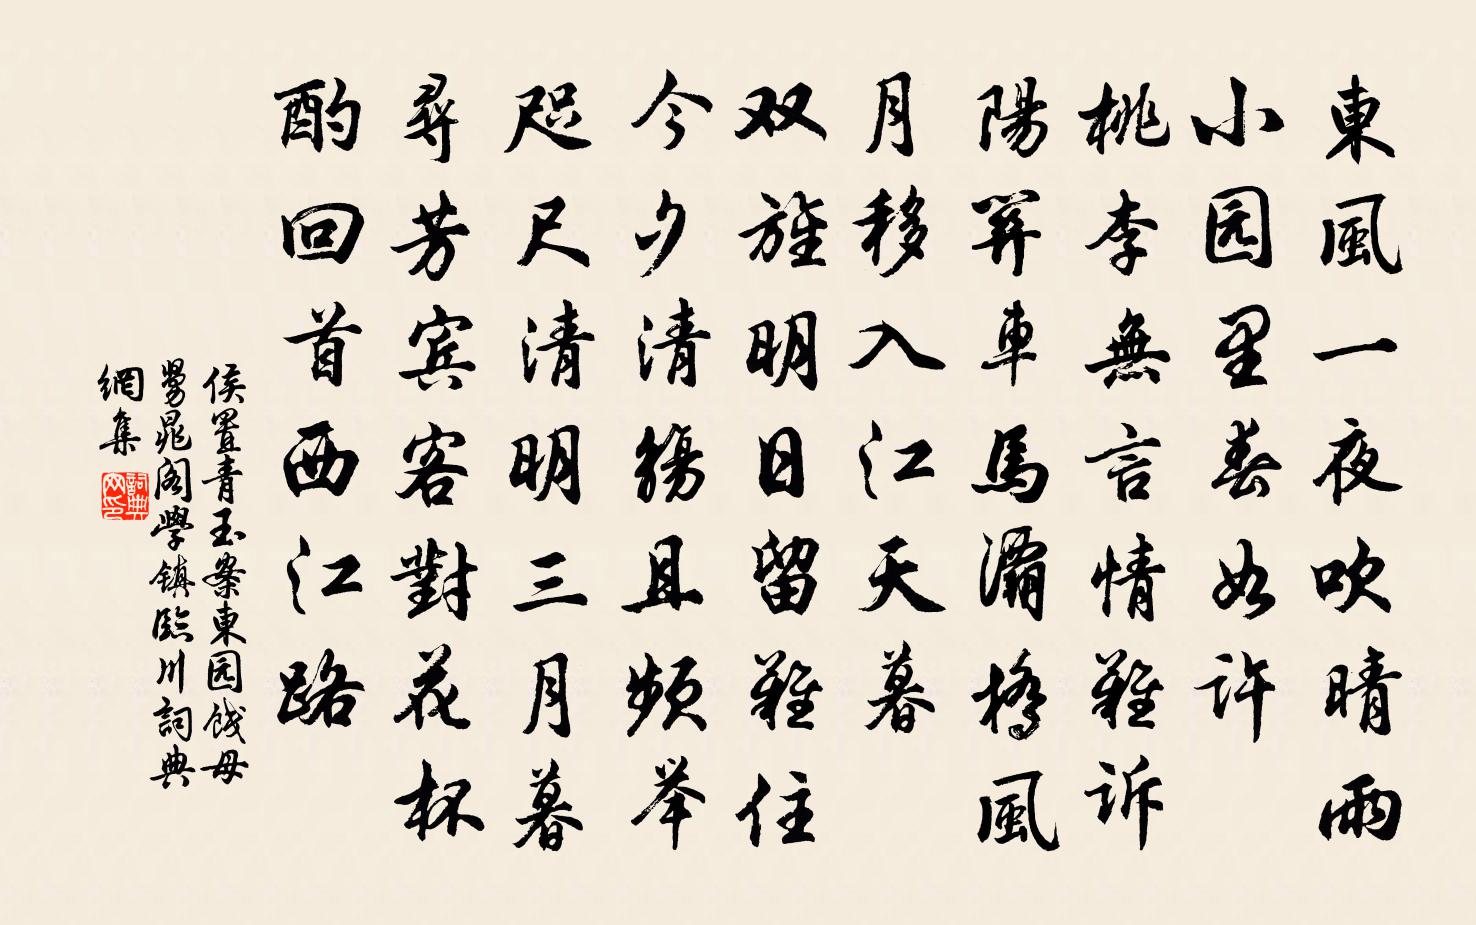 東風一夜吹晴雨
小园里春如許
桃李無言情難訴
陽關車馬灞橋風
月移入江天暮
双旌明日留難住
今夕清觴且頻举
咫尺清明三月暮
尋芳宾客對花杯
酌回首西江路
侯置青玉案東园餞母
舅晁阁學镇臨川詞典
網集
詞典网印